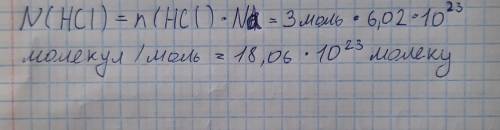 N(HCl) = n(HCl) · Na = 3 моль · 6,02 · 10²³
молекул/моль = 18,06 · 10²³ молеку